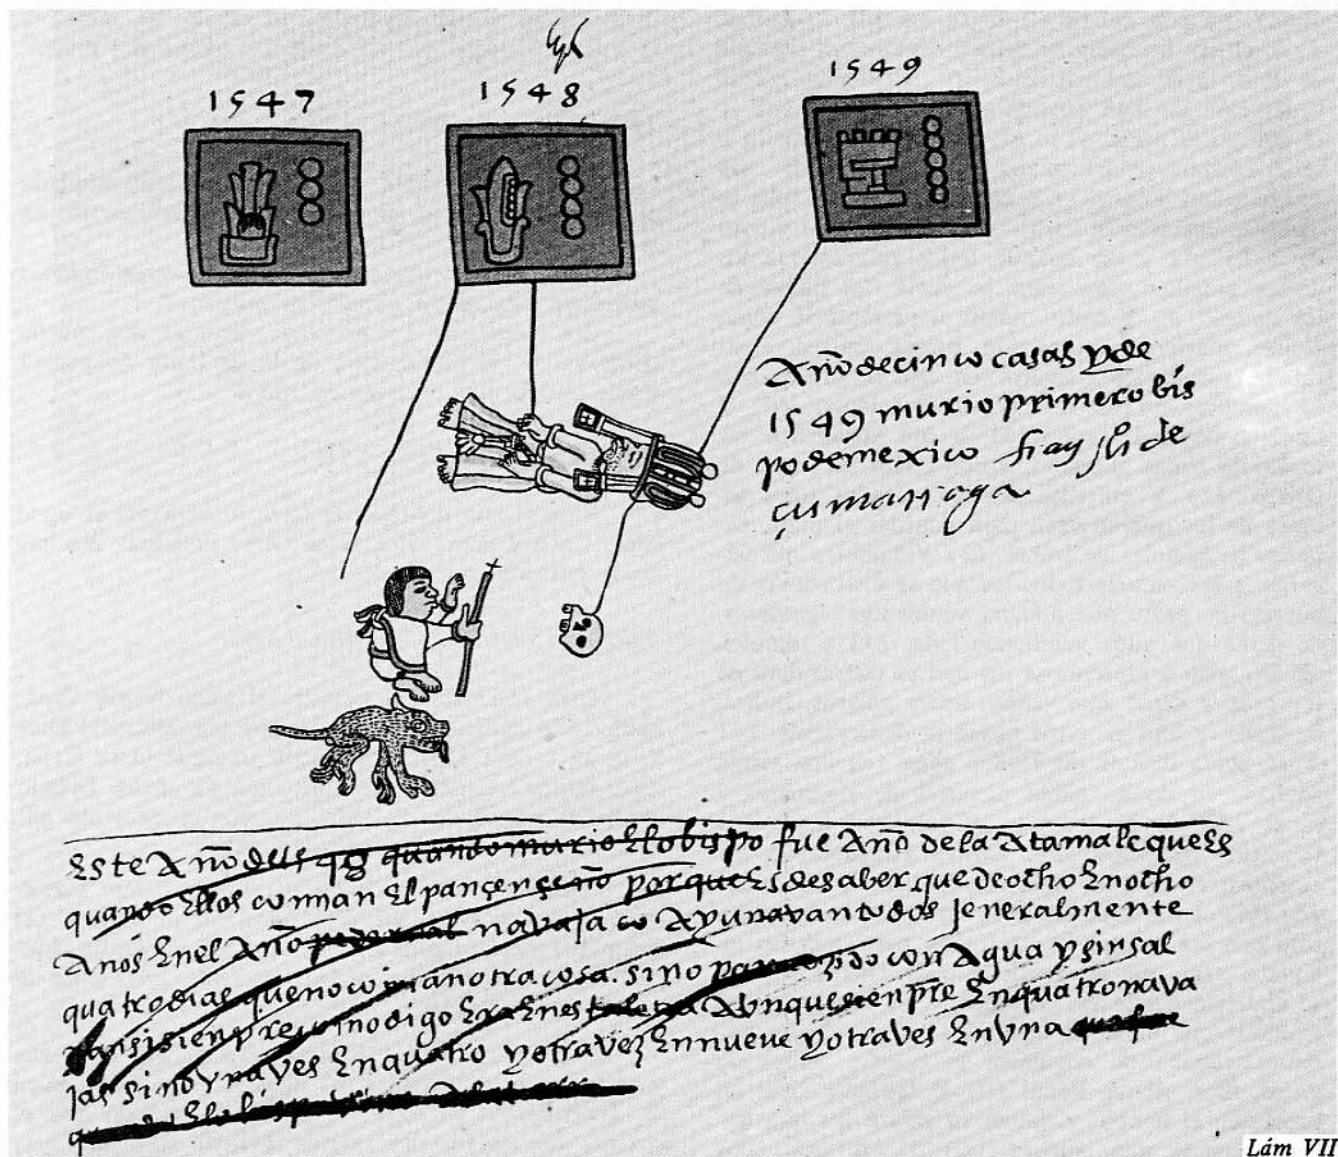 1547
1548
1549
Año de cinco casas y de
1549 murio primer obis
po de mexico fray ju° de
çumarraga
Este Año de quando murio El obispo fue Año de la Atamal que Es
quando Ellos comian El pan çençeño porque Es de saber que de ocho En ocho
Años En el Año navaja o Ayunavan todos jeneralmente
quatro dias que no comian otra cosa. sino pan con Agua y sin sal
siempre como digo Era En Aunque sienpre En quatro nava
jas sino una ves En quatro y otra vez En nueve y otra ves En una
Lám VII